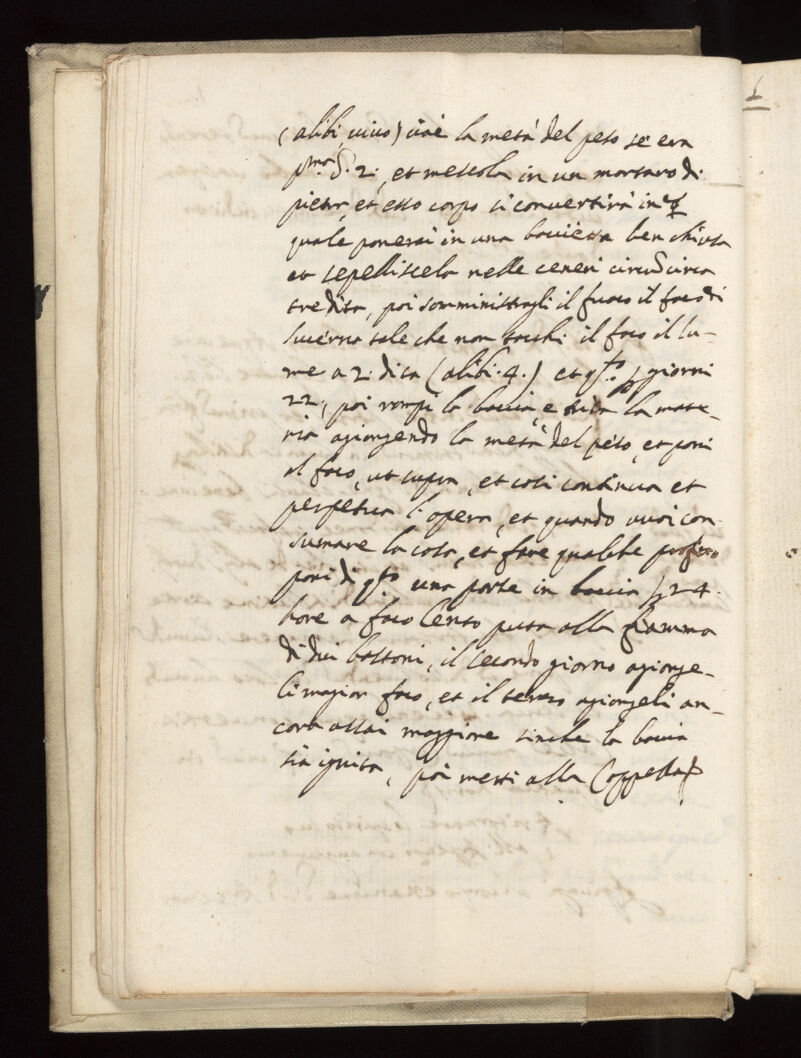 (alibi, vivo) cioè la metà del peso se era
pma ℥. 2., et mescola in un mortaro di
pietr, et esso corpo si convertirà in
quale ponerai in una boccietta ben chiusa
et sepelliscela nelle ceneri circu circa
tre dita, poi somministragli il fuoco il foco di
lucerna tale che non tocchi il foco il lu-
me a 2. dita (alibi. 4.) et qsto p giorni
22, poi rompi la boccia, e la mate-
ria agiongendo la metà del peso, et poni
al foco, ut supra, et così continua et
perpetua l'opera, et quando vuoi con
sumare la cosa, et fare qualche profitto
poni di qsto una parte in boccia p 24.
hore a foco lento puta alla fiamma
di dui bastoni, il secondo giorno agionge-
li magior foco, et il terzo agiongeli an-
cora assai maggiore sinche la boccia
sia ignita, poi metti alla Coppella
6